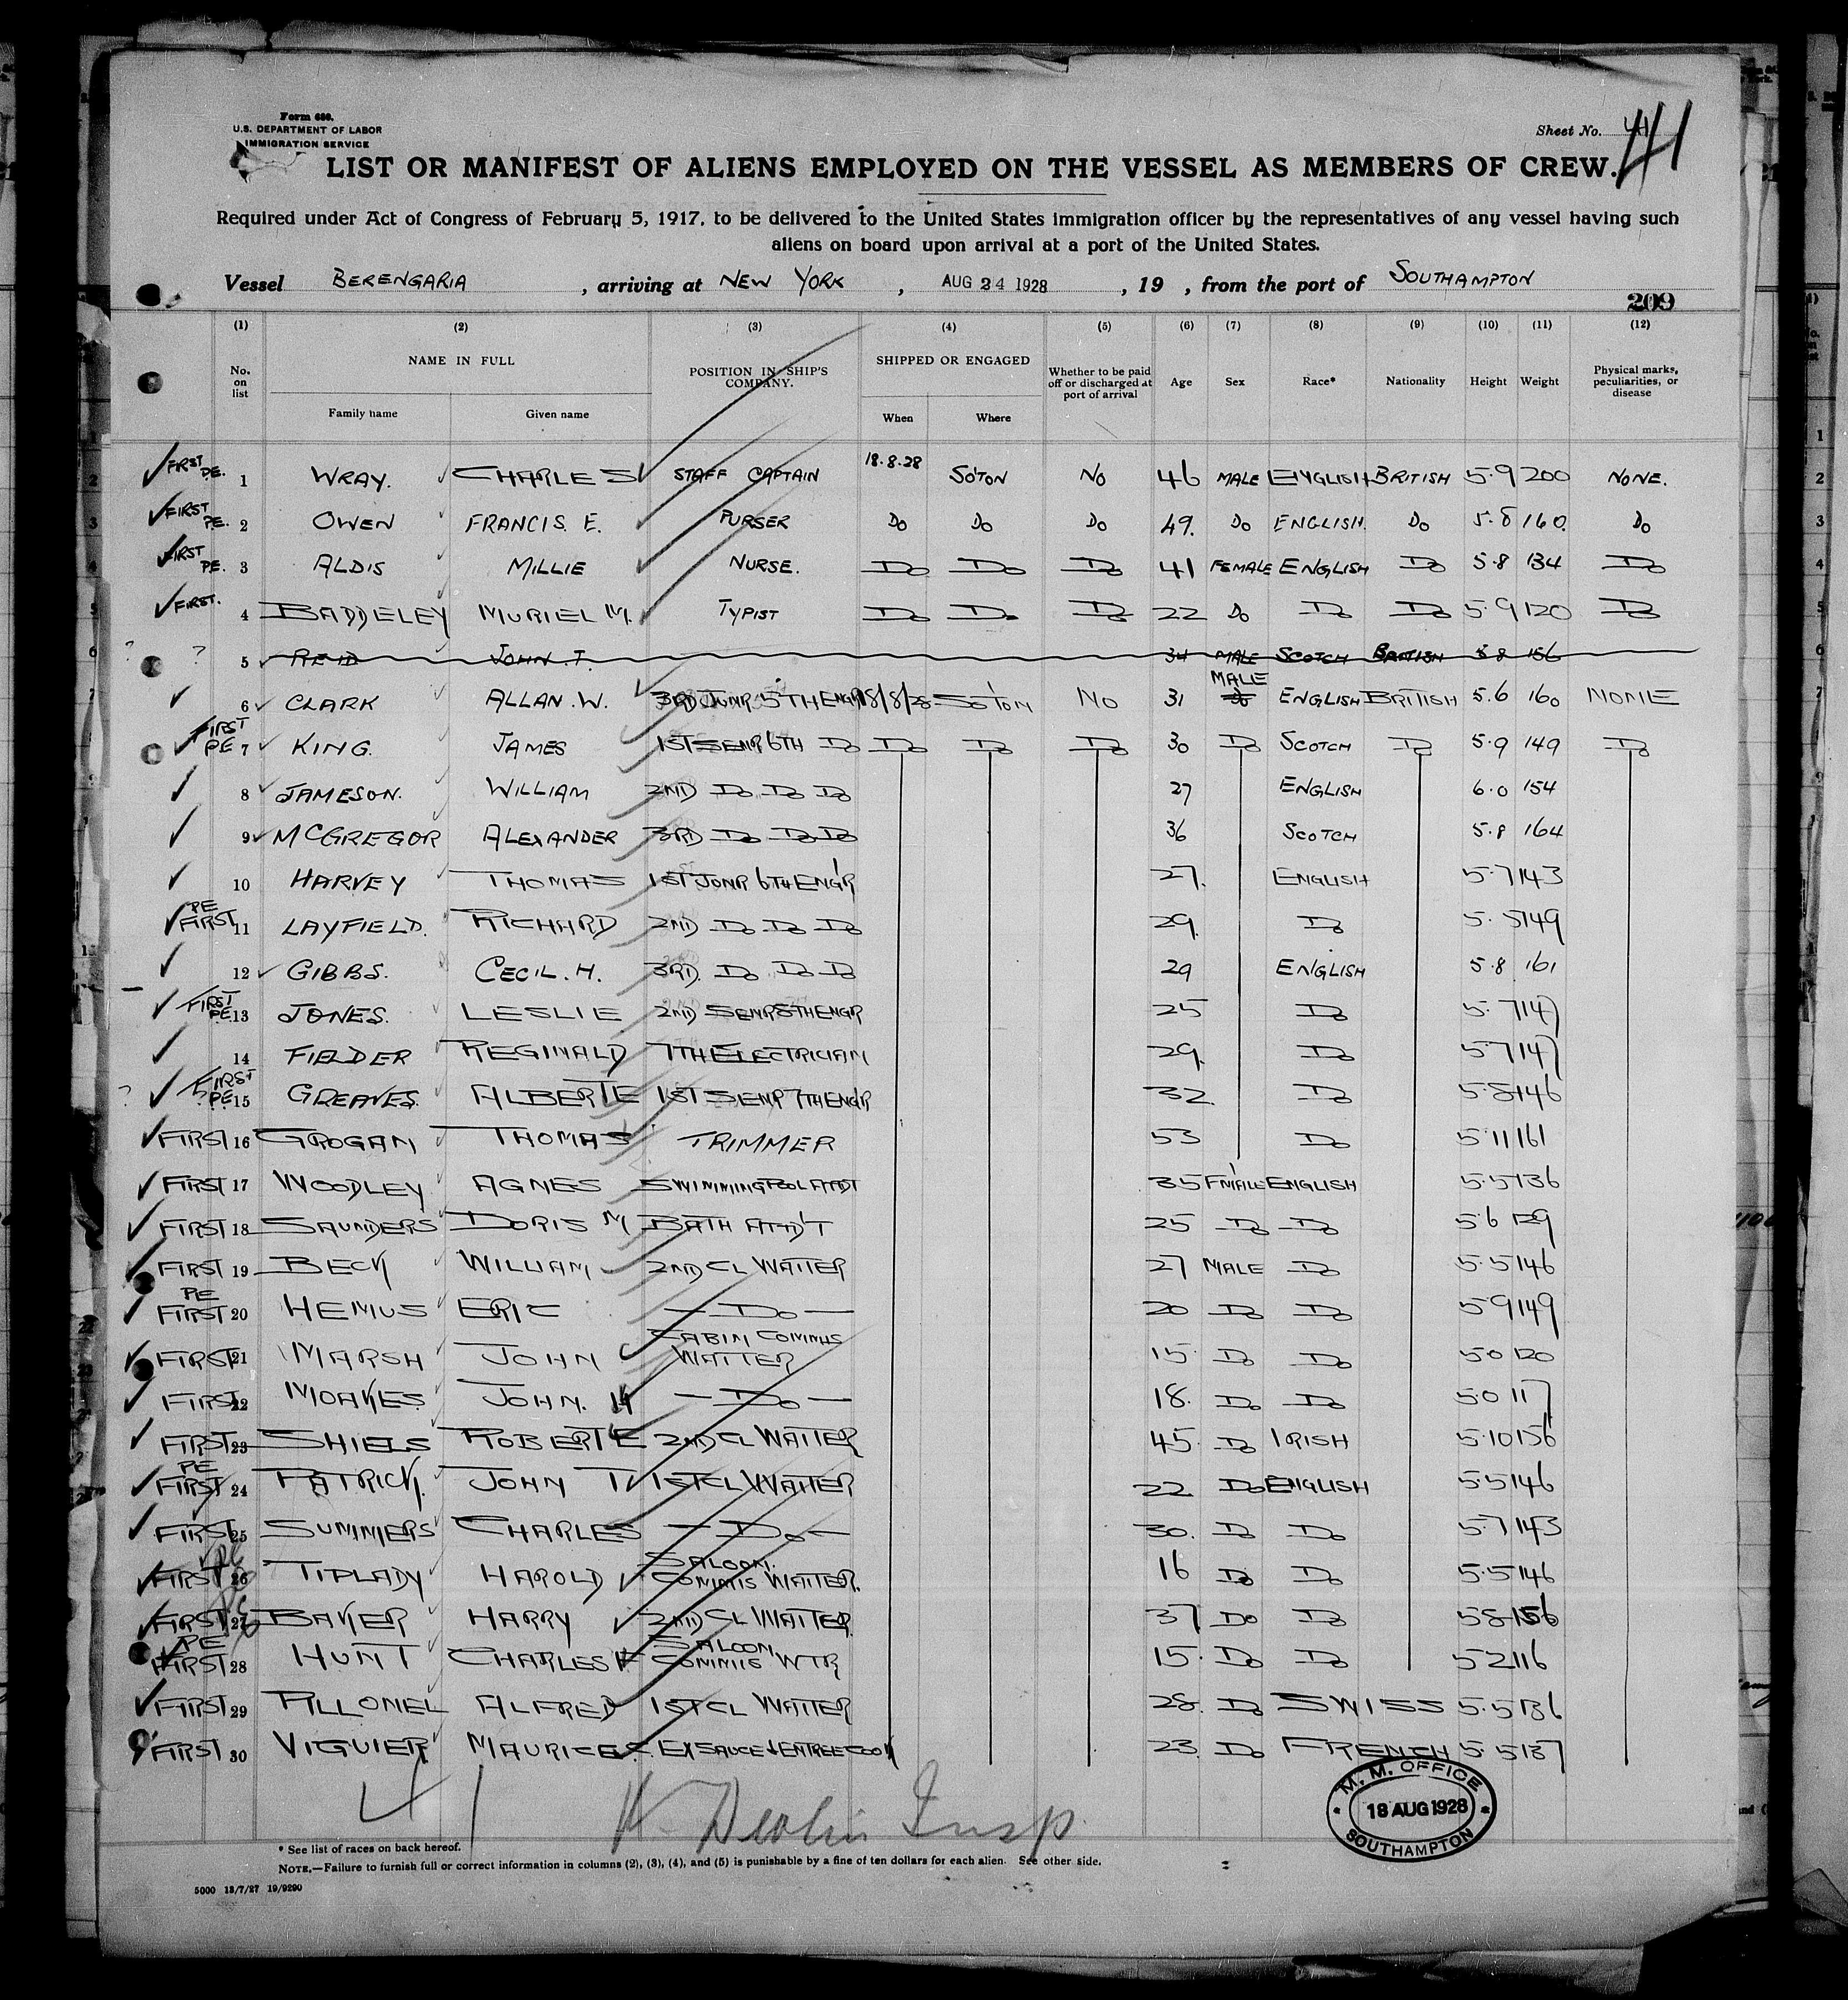 Form 680.
U.S. DEPARTMENT OF LABOR
IMMIGRATION SERVICE
Sheet No. 41
LIST OR MANIFEST OF ALIENS EMPLOYED ON THE VESSEL AS MEMBERS OF CREW.
Required under Act of Congress of February 5, 1917, to be delivered to the United States immigration officer by the representatives of any vessel having such
aliens on board upon arrival at a port of the United States.
Vessel BERENGARIA, arriving at NEW YORK, AUG 24 1928, 19 , from the port of SOUTHAMPTON
209
(1) (2) (3) (4) (5) (6) (7) (8) (9) (10) (11) (12)
No. on list NAME IN FULL Family name Given name POSITION IN SHIP'S COMPANY. SHIPPED OR ENGAGED When Where Whether to be paid off or discharged at port of arrival Age Sex Race* Nationality Height Weight Physical marks, peculiarities, or disease
✓ FIRST PE. 1 WRAY. CHARLES STAFF CAPTAIN 18.8.28 SO'TON NO 46 MALE ENGLISH BRITISH 5.9 200 NONE.
✓ FIRST PE. 2 OWEN FRANCIS. E. PURSER DO DO DO 49. DO ENGLISH. DO 5.8 160. DO
✓ FIRST PE. 3 ALDIS MILLIE NURSE. DO DO DO 41 FEMALE ENGLISH DO 5.8 134 DO
✓ FIRST. 4 BADDELEY MURIEL M. TYPIST DO DO DO 22 DO DO DO 5.9 120 DO
? 5 REID JOHN. T. 34 MALE SCOTCH BRITISH 5.8 156
✓ 6 CLARK ALLAN. W. 3RD JUNR 5TH ENGR 18/8/28 SO'TON NO 31 MALE ENGLISH BRITISH 5.6 160 NONE
✓ FIRST PE 7 KING. JAMES 1ST SENR 6TH DO DO DO DO 30 DO SCOTCH DO 5.9 149 DO
✓ 8 JAMESON. WILLIAM 2ND DO DO DO 27 ENGLISH 6.0 154
✓ 9 MCGREGOR ALEXANDER 3RD DO DO DO 36 SCOTCH 5.8 164
✓ 10 HARVEY THOMAS 1ST JUNR 6TH ENG'R 27. ENGLISH 5.7 143
✓ PE FIRST 11 LAYFIELD. RICHARD 2ND DO DO DO 29. DO 5.5 149
✓ 12 GIBBS. CECIL. H. 3RD. DO DO DO 29 ENGLISH 5.8 161
✓ FIRST PE 13 JONES. LESLIE 2ND SENR 5TH ENGR 25 DO 5.7 147
✓ 14 FIELDER REGINALD 7TH ELECTRICIAN 29. DO 5.7 147
? ✓ FIRST PE 15 GREAVES. ALBERT E 1ST SENR 7TH ENGR 32. DO 5.8 146
✓ FIRST 16 GROGAN THOMAS TRIMMER 53 DO 5.11 161
✓ FIRST 17 WOODLEY AGNES SWIMMING POOL ATTDT 35 FMALE ENGLISH 5.5 136
✓ FIRST 18 SAUNDERS DORIS M BATH ATTD'T 25 DO DO 5.6 129
✓ FIRST 19 BECK WILLIAM 2ND CL WAITER 27 MALE DO 5.5 146
✓ PE FIRST 20 HEMUS ERIC — DO — 20 DO DO 5.9 149
✓ FIRST 21 MARSH JOHN CABIN COMMIS WAITER 15. DO DO 5.0 120
✓ FIRST 22 MOAKES JOHN. H — DO — 18. DO DO 5.0 117
✓ FIRST 23 SHIELS ROBERT E 2ND CL WAITER 45. DO IRISH 5.10 156
✓ PE FIRST 24 PATRICK. JOHN T 1ST CL WAITER 22 DO ENGLISH 5.5 146
✓ FIRST 25 SUMMERS CHARLES — DO — 30. DO DO 5.7 143
✓ PE FIRST 26 TIPLADY HAROLD SALOON. COMMIS WAITER. 16 DO DO 5.5 146
✓ PE FIRST 27 BAKER HARRY 2ND CL WAITER. 37 DO DO 5.8 156
✓ PE FIRST 28 HUNT CHARLES F SALOON COMMIS WTR 15. DO DO 5.2 116
✓ FIRST 29 PILLONEL ALFRED 1ST CL WAITER 28. DO SWISS 5.5 136
✓ FIRST 30 VIGUIER MAURICE S. EX SAUCE & ENTREE COOK 23. DO FRENCH 5.5 137
41 Insp.
M. M. OFFICE
18 AUG 1928
SOUTHAMPTON
* See list of races on back hereof.
NOTE.—Failure to furnish full or correct information in columns (2), (3), (4), and (5) is punishable by a fine of ten dollars for each alien. See other side.
5000 13/7/27 19/9290